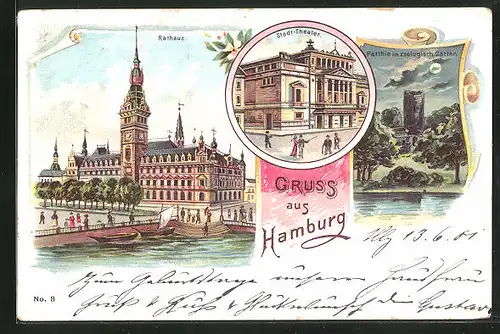 Rathaus.
Stadt-Theater.
Parthie im zoologisch. Garten.
GRUSS
aus
Hamburg
Hbg 13.6.01
Zum Geburtstage unserm
Gruß & Kuß & Glückwunsch die Gustav
No. 8